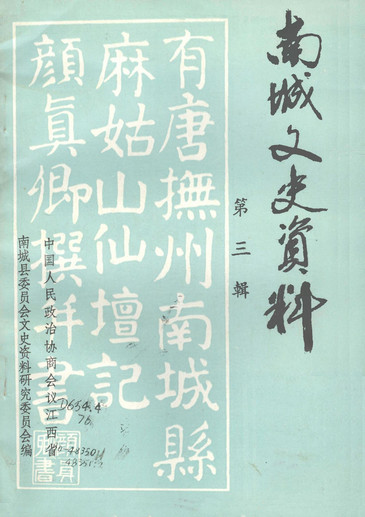 南城文史資料
第三輯
有唐撫州南城縣
麻姑山仙壇記
顔真卿撰并書
中国人民政治协商会议江西省
南城县委员会文史资料研究委员会编
D654.4
76